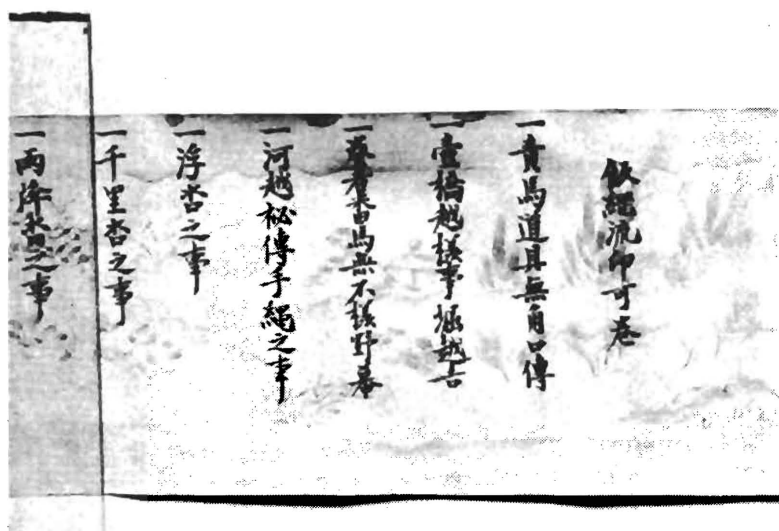 縄流印可巻
一責馬道具無角口傳
一壹橋越様事堀越
一馬無不様野
一河越秘傳手縄之事
一浮沓之事
一千里沓之事
一雨降沓之事